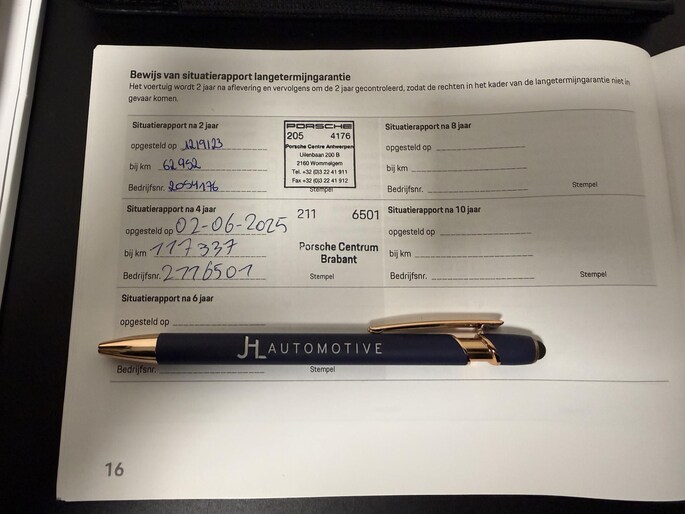 Bewijs van situatierapport langetermijngarantie
Het voertuig wordt 2 jaar na aflevering en vervolgens om de 2 jaar gecontroleerd, zodat de rechten in het kader van de langetermijngarantie niet in
gevaar komen.
Situatierapport na 2 jaar
opgesteld op 12/9/23
bij km 62952
Bedrijfsnr. 2054176
PORSCHE
205 4176
Porsche Centre Antwerpen
Uilenbaan 200 B
2160 Wommelgem
Tel. +32 (0)3 22 41 911
Fax +32 (0)3 22 41 912
Stempel
Situatierapport na 8 jaar
opgesteld op
bij km
Bedrijfsnr.
Stempel
Situatierapport na 4 jaar
opgesteld op 02-06-2025
bij km 117337
Bedrijfsnr. 2116501
211 6501
Porsche Centrum
Brabant
Stempel
Situatierapport na 10 jaar
opgesteld op
bij km
Bedrijfsnr.
Stempel
Situatierapport na 6 jaar
opgesteld op
JHL AUTOMOTIVE
Bedrijfsnr.
Stempel
16